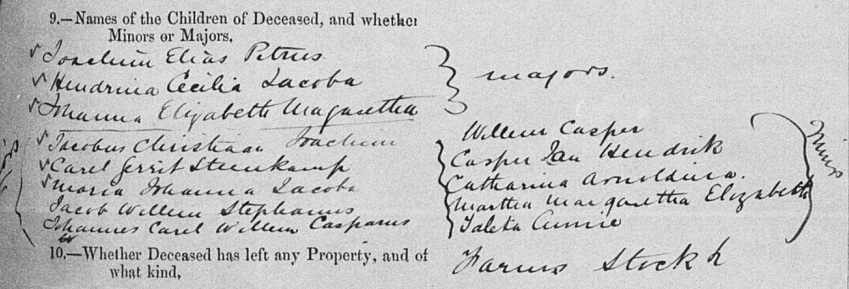 9.—Names of the Children of Deceased, and whether
Minors or Majors.
Joachim Elias Petrus
Hendrina Cecilia Jacoba
Johanna Elizabeth Magaretha
majors.
Jacobus Christiaan Joachim
Carel Gerrit Steenkamp
Maria Johanna Jacoba
Jacob Willem Stephanus
Johannes Carel Willem Casparus
Willem Casper
Casper Jan Hendrik
Catharina Arnoldina.
Martha Margaretha Elizabeth
Taleta Annie
Minors
10.—Whether Deceased has left any Property, and of
what kind,
Farms Stock